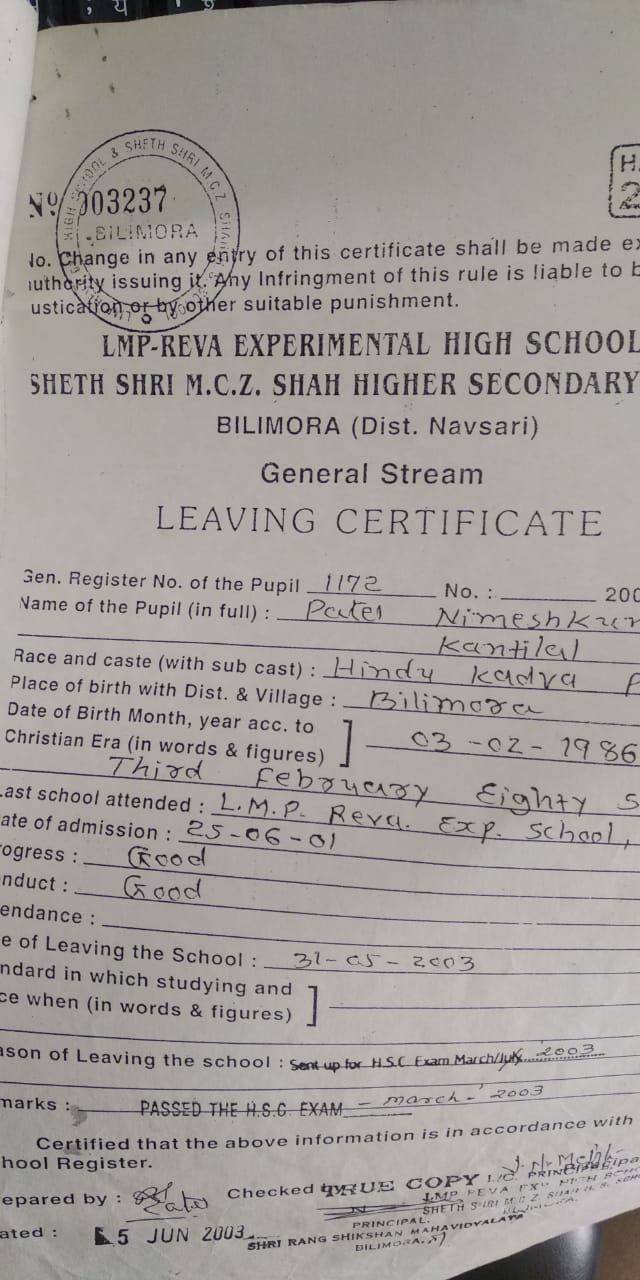 No 003237
HIGH SCHOOL & SHETH SHRI M.C.Z. SHAH
BILIMORA
H
2
No. Change in any entry of this certificate shall be made ex
uthority issuing it. Any Infringment of this rule is liable to b
ustication or by other suitable punishment.
LMP-REVA EXPERIMENTAL HIGH SCHOOL
SHETH SHRI M.C.Z. SHAH HIGHER SECONDARY
BILIMORA (Dist. Navsari)
General Stream
LEAVING CERTIFICATE
Gen. Register No. of the Pupil 1172 No. : 200
Name of the Pupil (in full) : Patel Nimeshkum
Kantilal
Race and caste (with sub cast) : Hindu Kadva P
Place of birth with Dist. & Village : Bilimora
Date of Birth Month, year acc. to
Christian Era (in words & figures) ] 03-02-1986
Third February Eighty S
Last school attended : L.M.P. Reva. Exp. School,
ate of admission : 25-06-01
rogress : Good
nduct : Good
endance :
e of Leaving the School : 31-05-2003
ndard in which studying and
ce when (in words & figures) ]
ason of Leaving the school : Sent up for H.S.C. Exam March/July 2003
marks : PASSED THE H.S.C. EXAM - march-' 2003
Certified that the above information is in accordance with
hool Register.
epared by : Checked by TRUE COPY I/C. PRINCIPAL
LMP REVA EXP HIGH SCHO
SHETH SHRI M C Z. SHAH H. S. SCHO
BILIMORA.
ated : 5 JUN 2003
PRINCIPAL.
SHRI RANG SHIKSHAN MAHAVIDYALAYA
BILIMORA.